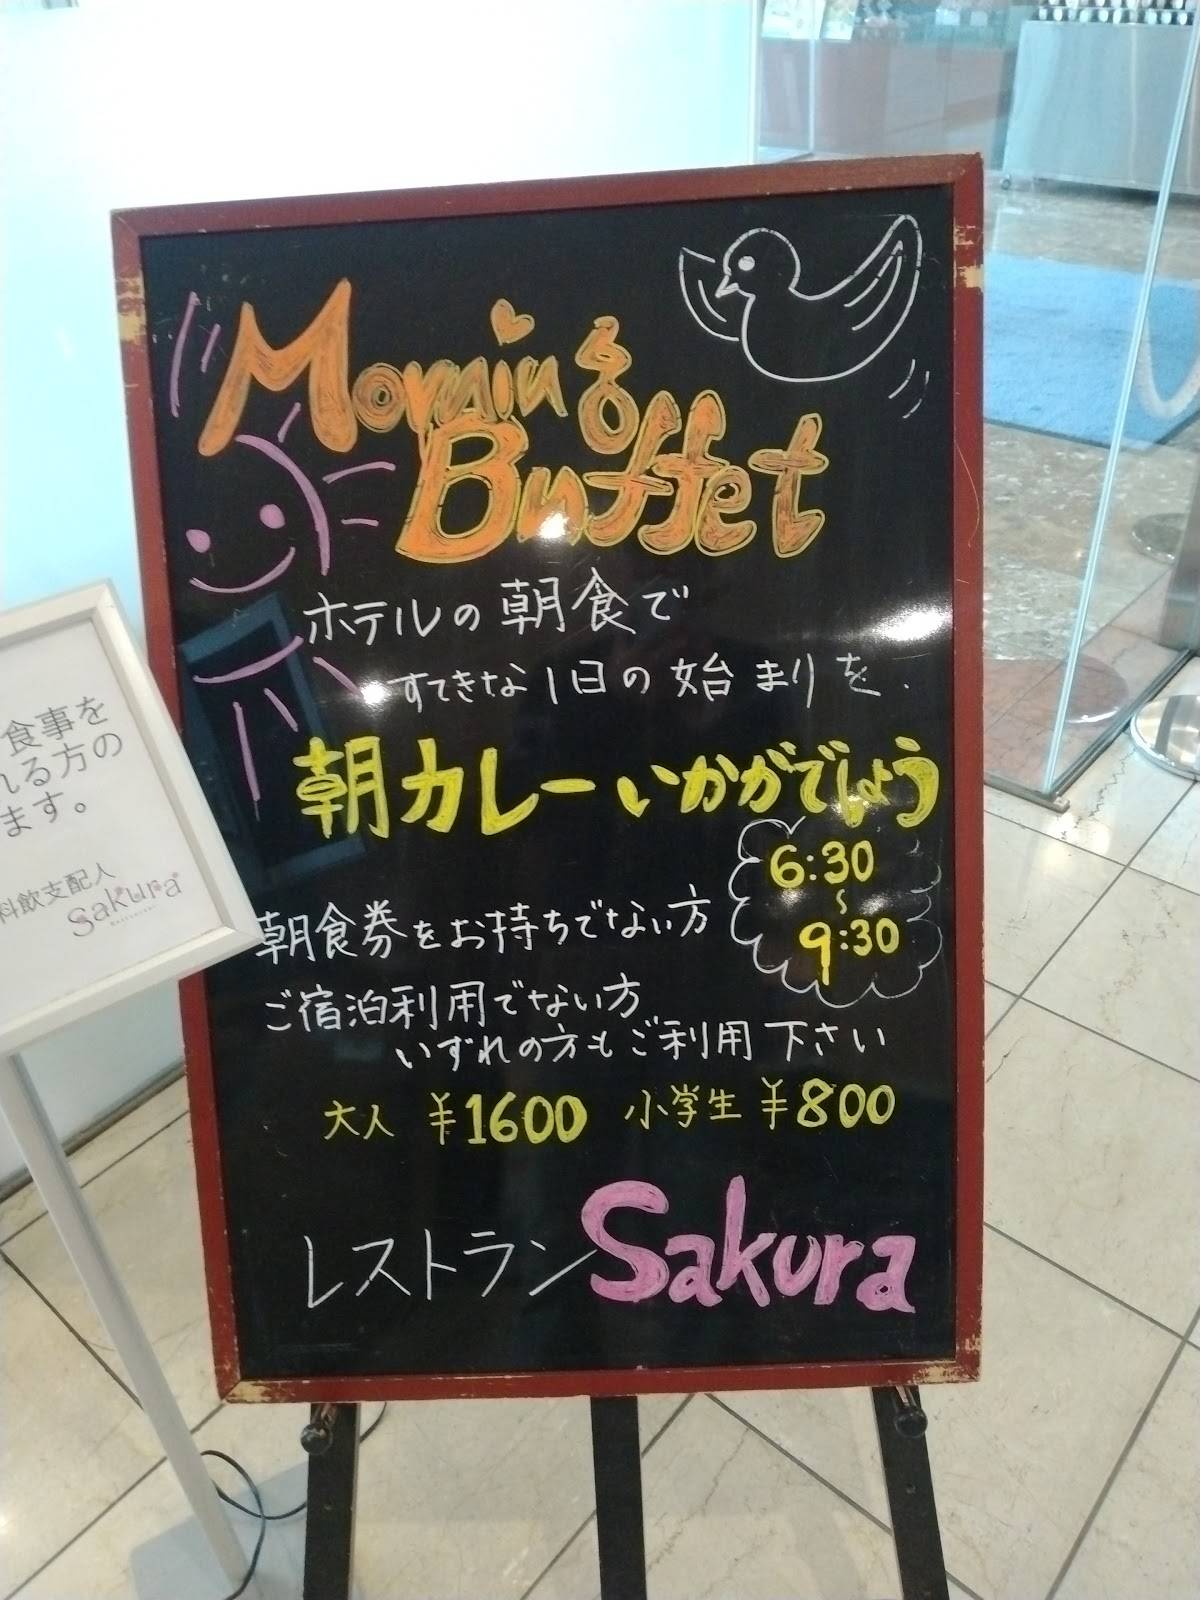 Morning
Buffet
ホテルの朝食で
すてきな1日の始まりを.
朝カレーいかがでしょう
6:30
~
9:30
朝食券をお持ちでない方
ご宿泊利用でない方
いずれの方もご利用下さい
大人 ¥1600 小学生 ¥800
レストランSakura
食事を
れる方の
ます。
料飲支配人
Sakura